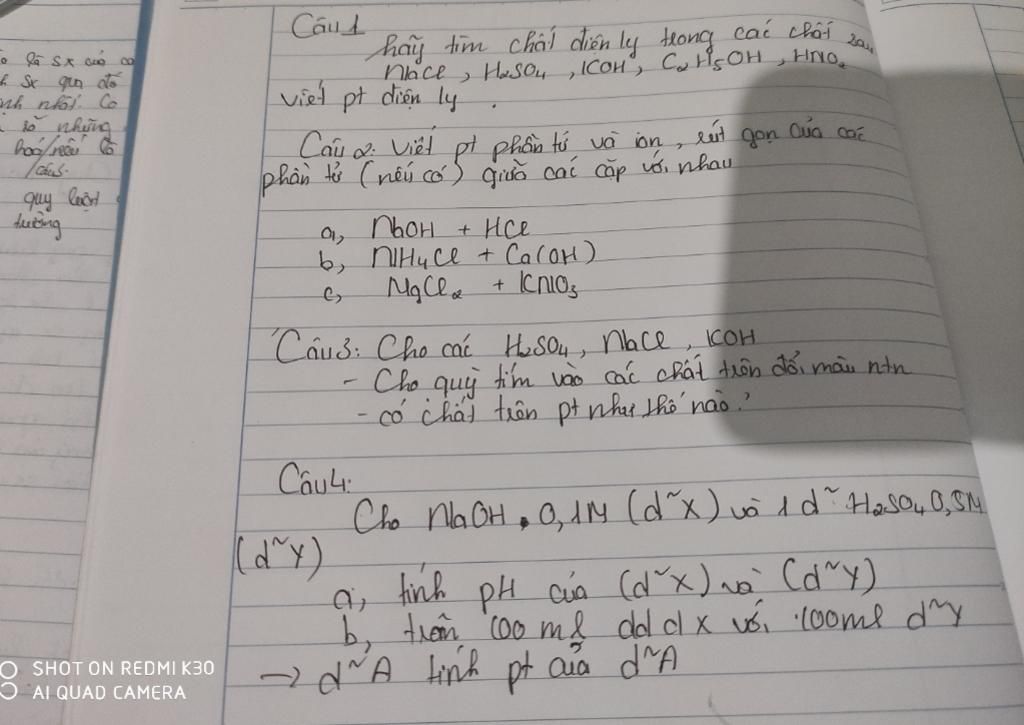 o là sx của co
h sx qua đó
nh nhôi. Co
số những
quy luật
tường
Câu 1
hãy tìm chất điện ly trong các chất sau
Nacl, H2SO4, KOH, C2H5OH, HNO2
viết pt điện ly.
Câu 2: Viết pt phân tử và ion, rút gọn của các
phân tử (nếu có) giữa các cặp với nhau
a, NaOH + HCl
b, NH4Cl + Ca(OH)
c, MgCl2 + KNO3
Câu3: Cho các H2SO4, NaCl, KOH
- Cho quỳ tím vào các chất trên đổi màu ntn
- có chất trên pt như thế nào?
Câu4:
Cho NaOH 0,1M (d~X) và 1 d~ H2SO4 0,5M
(d~Y)
a, tính pH của (d~X) và (d~Y)
b, trộn 100 ml dd d X với 100ml d~Y
→ d~A tính pt của d~A
SHOT ON REDMI K30
AI QUAD CAMERA